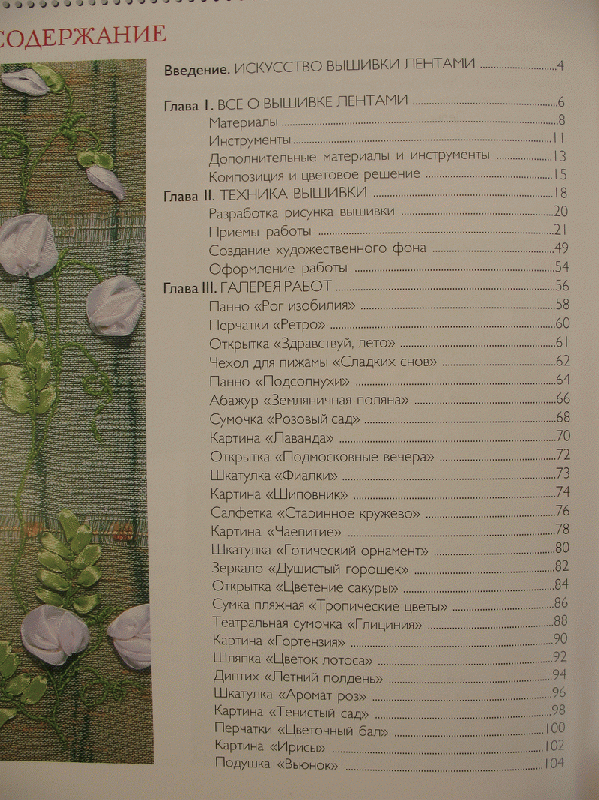 СОДЕРЖАНИЕ
Введение. ИСКУССТВО ВЫШИВКИ ЛЕНТАМИ 4
Глава I. ВСЕ О ВЫШИВКЕ ЛЕНТАМИ 6
Материалы 8
Инструменты 11
Дополнительные материалы и инструменты 13
Композиция и цветовое решение 15
Глава II. ТЕХНИКА ВЫШИВКИ 18
Разработка рисунка вышивки 20
Приемы работы 21
Создание художественного фона 49
Оформление работы 54
Глава III. ГАЛЕРЕЯ РАБОТ 56
Панно «Рог изобилия» 58
Перчатки «Ретро» 60
Открытка «Здравствуй, лето» 61
Чехол для пижамы «Сладких снов» 62
Панно «Подсолнухи» 64
Абажур «Земляничная поляна» 66
Сумочка «Розовый сад» 68
Картина «Лаванда» 70
Открытка «Подмосковные вечера» 72
Шкатулка «Фиалки» 73
Картина «Шиповник» 74
Салфетка «Старинное кружево» 76
Картина «Чаепитие» 78
Шкатулка «Готический орнамент» 80
Зеркало «Душистый горошек» 82
Открытка «Цветение сакуры» 84
Сумка пляжная «Тропические цветы» 86
Театральная сумочка «Глициния» 88
Картина «Гортензия» 90
Шляпка «Цветок лотоса» 92
Диптих «Летний полдень» 94
Шкатулка «Аромат роз» 96
Картина «Тенистый сад» 98
Перчатки «Цветочный бал» 100
Картина «Ирисы» 102
Подушка «Вьюнок» 104